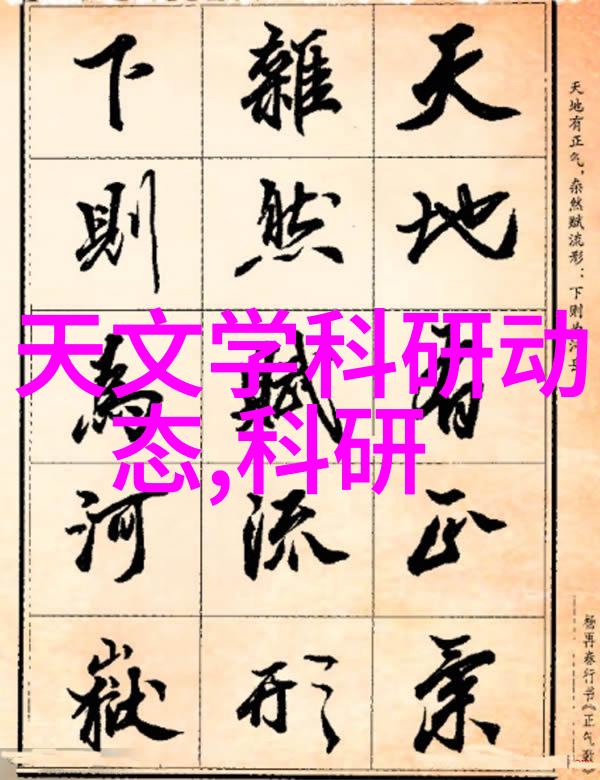 天地有正氣
雜然賦流形
下則為河嶽
天地有正气，杂然赋流形：下则为河岳
杨再春行书《正气歌》
天文学科研动
态,科研